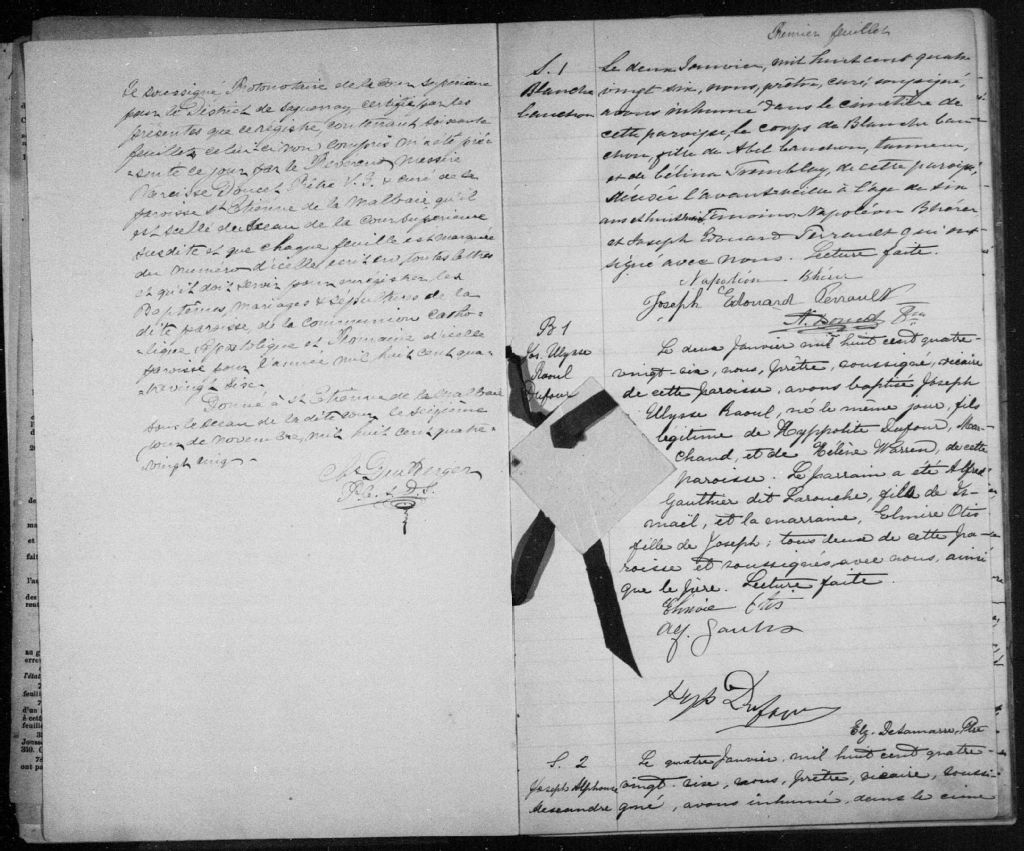 Je soussigné Protonotaire de la Cour Supérieure
pour le District de Saguenay, certifie par les
présentes que ce registre, contenant soixante
feuillets celui-ci non compris m'a été pré-
senté ce jour par le Révérend Messire
Narcisse Doucet Prêtre V. F. & curé de la
paroisse St Etienne de la Malbaie qu'il
est scellé du sceau de la Cour Supérieure
susdite et que chaque feuillet est marqué
du numéro d'icelle écrit en toutes lettres
et qu'il doit servir pour enrégistrer les
Baptêmes, mariages & sépultures de la
dite paroisse, de la communion catho-
lique Apostolique et Romaine d'icelle
paroisse pour l'année mil huit cent qua-
tre vingt six.
Donné à St Etienne de la Malbaie
sous le sceau de la dite cour le seizième
jour de novembre, mil huit cent quatre
vingt cinq.
P.C.S.D.S.
Premier feuillet
S. 1
Blanche
Cauchon
Le deux Janvier, mil huit cent quatre
vingt six, nous, prêtre, curé soussigné,
avons inhumé dans le cimetière de
cette paroisse, le corps de Blanche Cau-
chon, fille de Abel Cauchon, tanneur,
et de Célina Tremblay, de cette paroisse,
décédée l'avant-veille à l'âge de six
ans et huit mois Témoins Napoléon Bhérer
et Joseph Edouard Perrault qui ont
signé avec nous. Lecture faite.
Napoléon Bhérer
Joseph Edouard Perrault
N. Doucet Ptre
B 1
Jos. Ulysse
Raoul
Dufour
Le deux Janvier mil huit cent quatre-
vingt-six, nous, prêtre, soussigné, vicaire
de cette paroisse, avons baptisé Joseph
Ulysse Raoul, né le même jour, fils
légitime de Hyppolite Dufour, Mar-
chand, et de Hélène Warren, de cette
paroisse. Le parrain a été Alfred
Gauthier dit Larouche, fils de Is-
maël, et la marraine, Elmire Otis
fille de Joseph; tous deux de cette pa-
roisse et soussignés avec nous, ainsi
que le père. Lecture faite.
Elmire Otis
Alf. Gauthier
Hyp Dufour
Elz. DeLamarre, Ptre
S. 2
Joseph Alphonse
Le quatre Janvier, mil huit cent quatre-
vingt-six, nous, prêtre, vicaire, soussi-
gné, avons inhumé, dans le cime